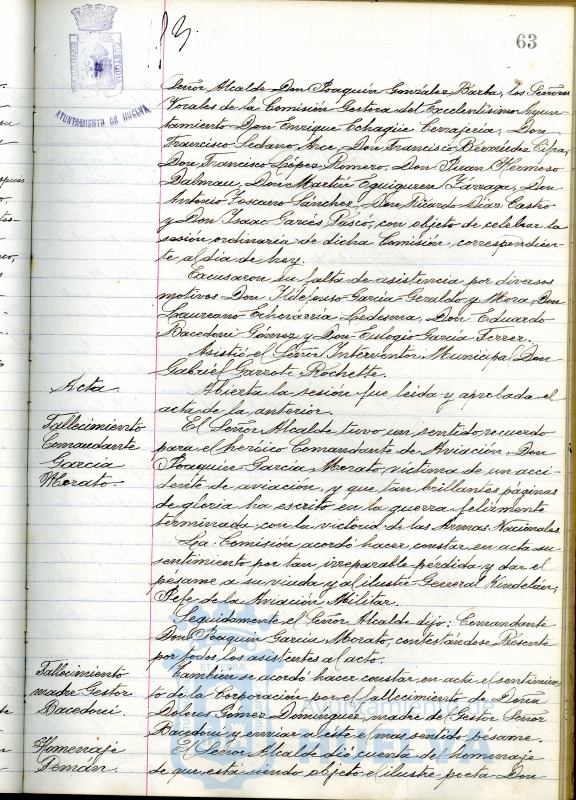 63
AYUNTAMIENTO DE HUELVA
Señor Alcalde Don Joaquín González Barba, los Señores
Vocales de la Comisión Gestora del Excelentísimo Ayun-
tamiento Don Enrique Echagüe Cerrajería, Don
Francisco Sedano Arce, Don Francisco Bermúdez Cifra,
Don Francisco López Romero, Don Juan Hermoso
Dalmau, Don Martín Eguiguren Fárraga, Don
Antonio Toscano Sánchez, Don Nicardo Díaz Castro
y Don Isaac Garcés Pascó, con objeto de celebrar la
sesión ordinaria de dicha Comisión, correspondien-
te al día de hoy.
Excusaron su falta de asistencia por diversos
motivos Don Ildefonso García-Geraldo y Mora, Don
Laureano Echevárria Ledesma, Don Eduardo
Bacedoni Gómez y Don Eulogio García Ferrer.
Asistió el Señor Interventor Municipal Don
Gabriel Garrote Rochette.
Acta
Abierta la sesión fue leida y aprobada el
acta de la anterior.
Fallecimiento
Comandante
García
Morato.
El Señor Alcalde tuvo un sentido recuerdo
para el heróico Comandante de Aviación, Don
Joaquín García Morato, víctima de un acci-
dente de aviación, y que tan brillantes páginas
de gloria ha escrito en la guerra felizmente
terminada con la victoria de las Armas Nacionales.
La Comisión acordó hacer constar en acta su
sentimiento por tan irreparable pérdida y dar el
pésame a su viuda y al ilustre General Kindelán,
Jefe de la Aviación Militar.
Seguidamente el Señor Alcalde dijo: Comandante
Don Joaquín García Morato, contestándose, Presente
por todos los asistentes al acto.
Fallecimiento
madre Gestor
Bacedoni.
También se acordó hacer constar en acta el sentimien-
to de la Corporación por el fallecimiento de Doña
Dolores Gómez Domínguez, madre del Gestor Señor
Bacedoni y enviar a éste el más sentido pésame.
Homenaje
Pemán.
El Señor Alcalde dió cuenta del homenaje
de que está siendo objeto el ilustre poeta Don
Ayuntamiento de
HUELVA